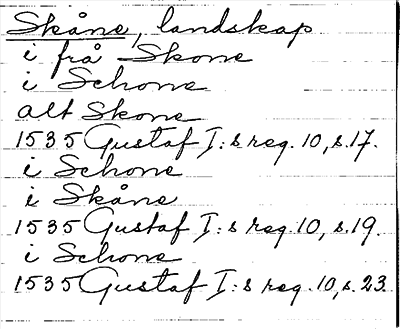 Skåne, landskap
i från Skone
i Schone
alt Skone
1535 Gustaf I:s reg. 10, s.17.
i Schone
i Skåne
1535 Gustaf I:s reg. 10, s.19.
i Schone
1535 Gustaf I:s reg. 10, s.23